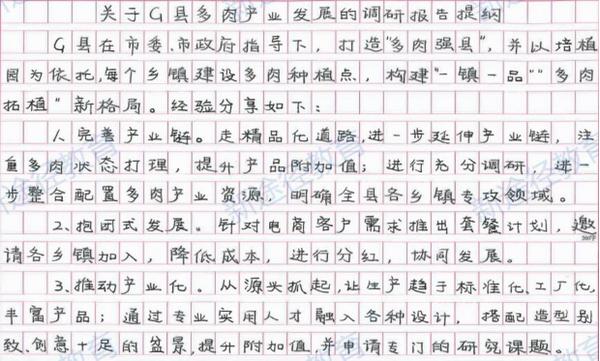 关于G县多肉产业发展的调研报告提纲
G县在市委、市政府指导下，打造"多肉强县"，并以培植
园为依托，每个乡镇建设多肉种植点，构建"一镇一品""多肉
拓植"新格局。经验分享如下：
1.完善产业链。走精品化道路，进一步延伸产业链，注
重多肉状态打理，提升产品附加值；进行充分调研，进一
步整合配置多肉产业资源，明确全县各乡镇专攻领域。
2.抱团式发展。针对电商客户需求推出套餐计划，邀
请各乡镇加入，降低成本，进行分红，协同发展。
3.推动产业化。从源头抓起，让生产趋于标准化、工厂化，
丰富产品；通过专业实用人才融入各种设计，搭配造型别
致、创意十足的盆景，提升附加值，并申请专门的研究课题。
新途径教育